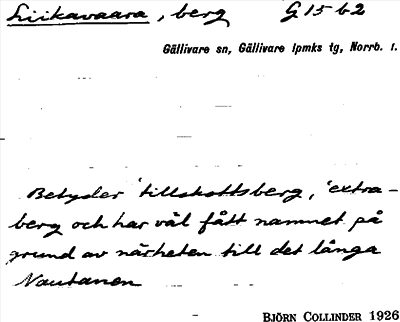 Liikavaara, berg G 15 b2
Gällivare sn, Gällivare lpmks tg, Norrb. l.
Betyder 'tillskottsberg, 'extra-
berg och har väl fått namnet på
grund av närheten till det långa
Nautanen
BJÖRN COLLINDER 1926